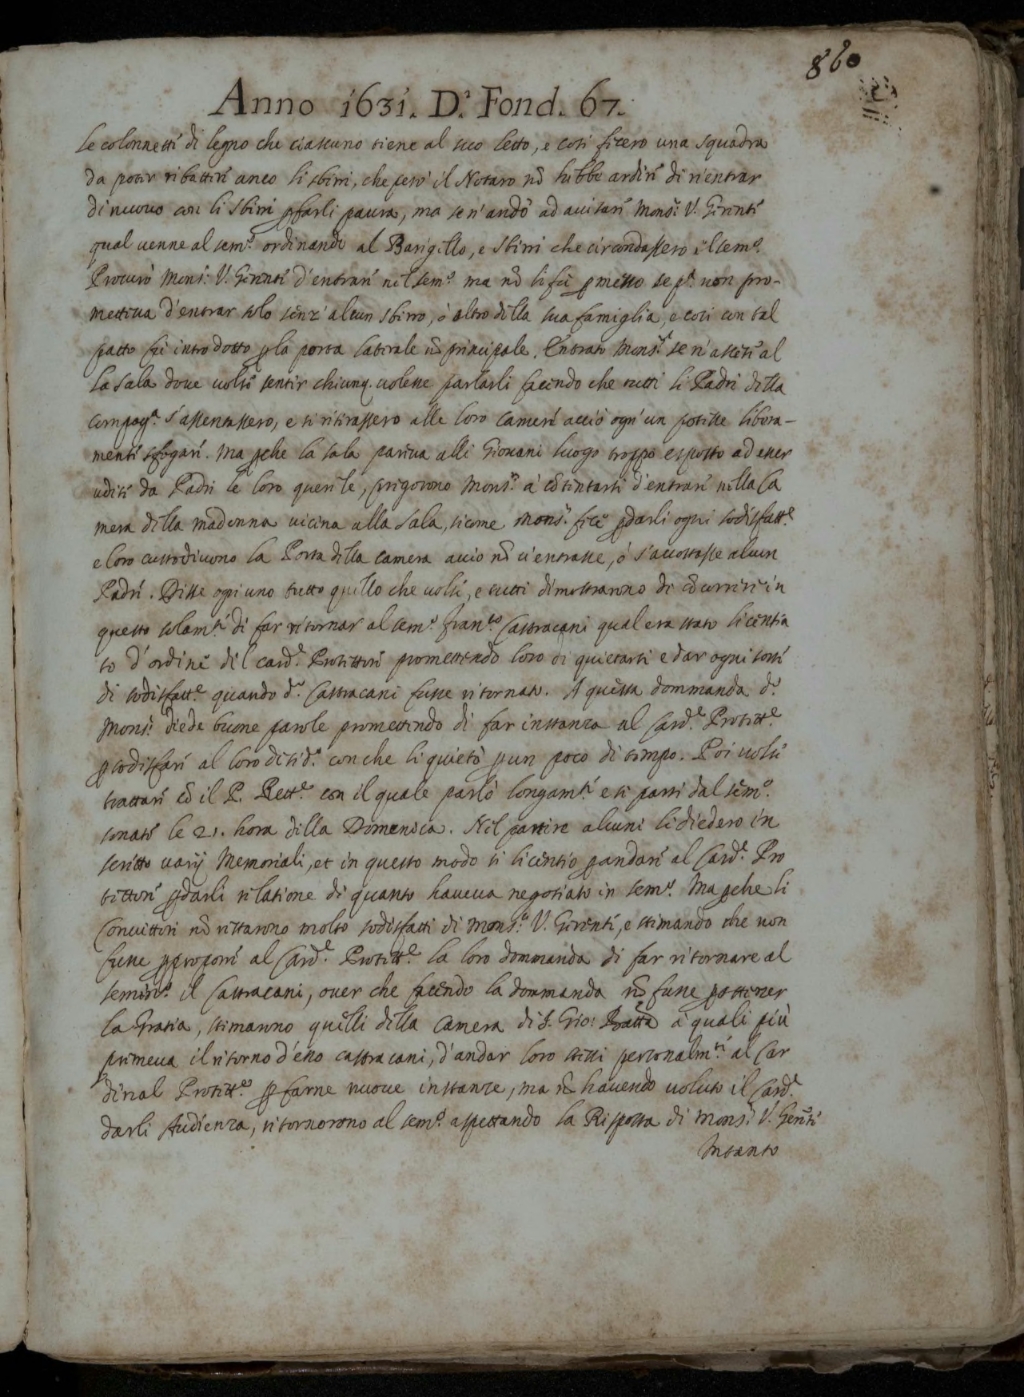 860
Anno 1631. D.ª Fond. 67.
le colonnette di legno che ciascuno tiene al suo letto, e così fecero una squadra
da poter ribatter anco li sbirri, che però il Notaro nō hebbe ardire di rientrar
di nuovo con li sbirri p farli paura, ma se n'andò ad avisare Mons.r V. Gerente
qual venne al sem.º ordinando al Barigello, e sbirri che circondassero il sem.º
Procurò Mons.r V. Gerente d'entrare nel sem.º ma nō li fù pmesso se p.ª non pro-
metteva d'entrar solo senz'alcun sbirro, ò altro della sua famiglia, e così con tal
patto fù introdotto p la porta laterale nō principale. Entrato Mons.r se n'ascese al
la sala dove volse sentir chiunq. volesse parlarli facendo che tutti li Padri della
Compag.ª s'assentassero, e si ritirassero alle loro camere acciò ogn'un potesse libera-
mente sfogare. Ma pche la sala pareva alli Giovani luogo troppo esposto ad esser
uditi da Padri le loro querele, pregorono Mons.r à cōtentarsi d'entrare nella Ca
mera della madonna vicina alla sala, sicome Mons.r fece p darli ogni sodisfatt.e
e loro custodivono la Porta della camera acciò nō ci entrasse, ò s'accostasse alcun
Padre. Disse ogni uno tutto quello che volse, e tutti dimostranno di cōcorrere in
questo solam.te di far ritornar al sem.º Fran.co Castracani qual era stato licentia
to d'ordine del Card.e Protettore promettendo loro di quietarsi e dar ogni sorte
di sodisfatt.e quando d.º Castracani fusse ritornato. A questa dommanda d.º
Mons.r diede buone parole promettendo di far instanza al Card.e Protett.e
p sodisfare al loro desid.º con che li quietò p un poco di tempo. Poi volse
trattare cō il P. Rett.e con il quale parlò longam.te e si partì dal sem.º
sonate le 21. hora della Domenica. Nel partire alcuni li diedero in
scritto varij Memoriali, et in questo modo si licentiò p andare al Card.e Pro
tettore p darli relatione di quanto haveva negotiato in sem.º Ma pche li
Convittori nō restarono molto sodisfatti di Mons.r V. Gerente, e stimando che non
fusse p proporre al Card.e Protett.e la loro dommanda di far ritornare al
semin.º il Castracani, over che facendo la dommanda nō fusse p ottener
la Gratia, stimanno quelli della Camera di S. Gio: Batta à quali più
premeva il ritorno d'esso Castracani, d'andar loro stessi personalm.te al Car
dinal Protett.e p farne nuove instanze, ma nō havendo voluto il Card.e
darli Audienza, ritornorono al sem.º aspettando la Risposta di Mons.r V. Gerēte
Intanto